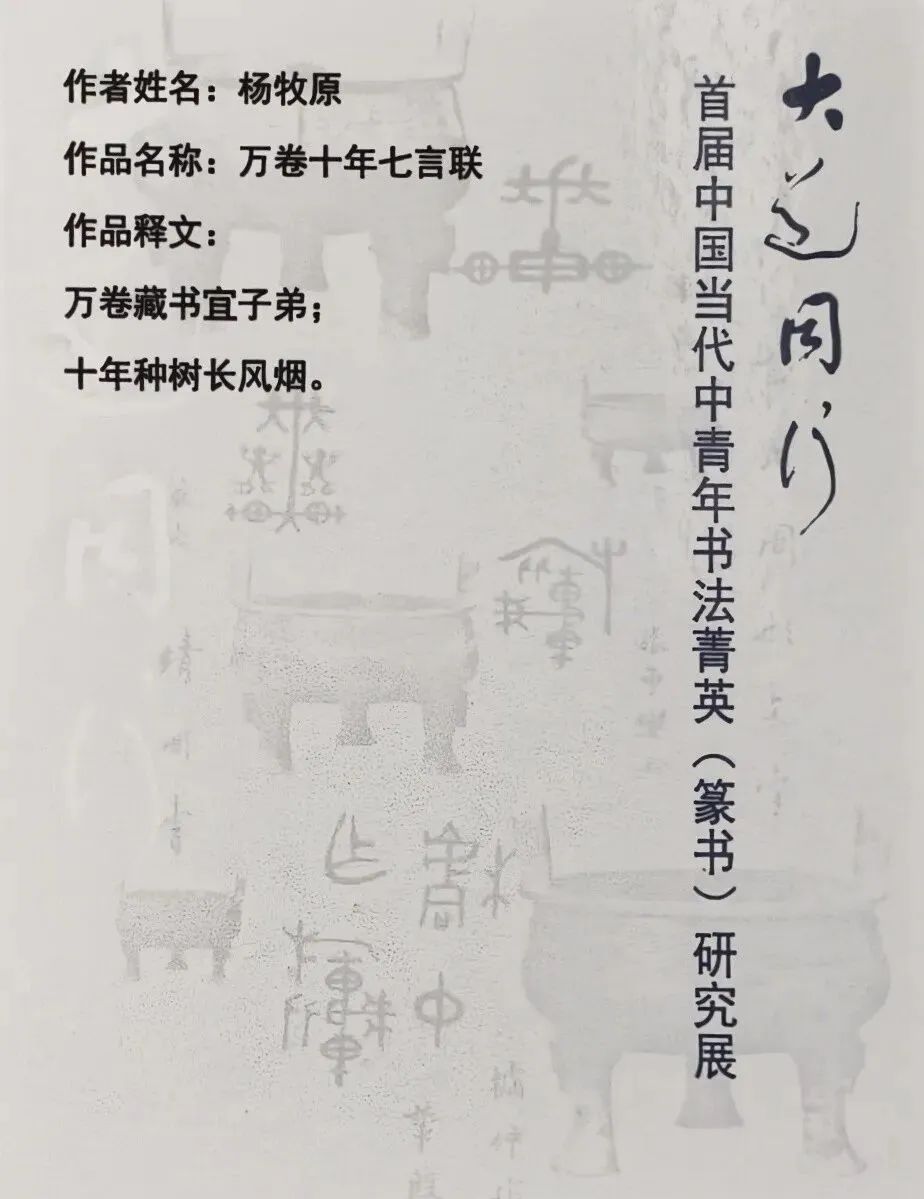 大道同行
首届中国当代中青年书法菁英（篆书）研究展
作者姓名：杨牧原
作品名称：万卷十年七言联
作品释文：
万卷藏书宜子弟；
十年种树长风烟。